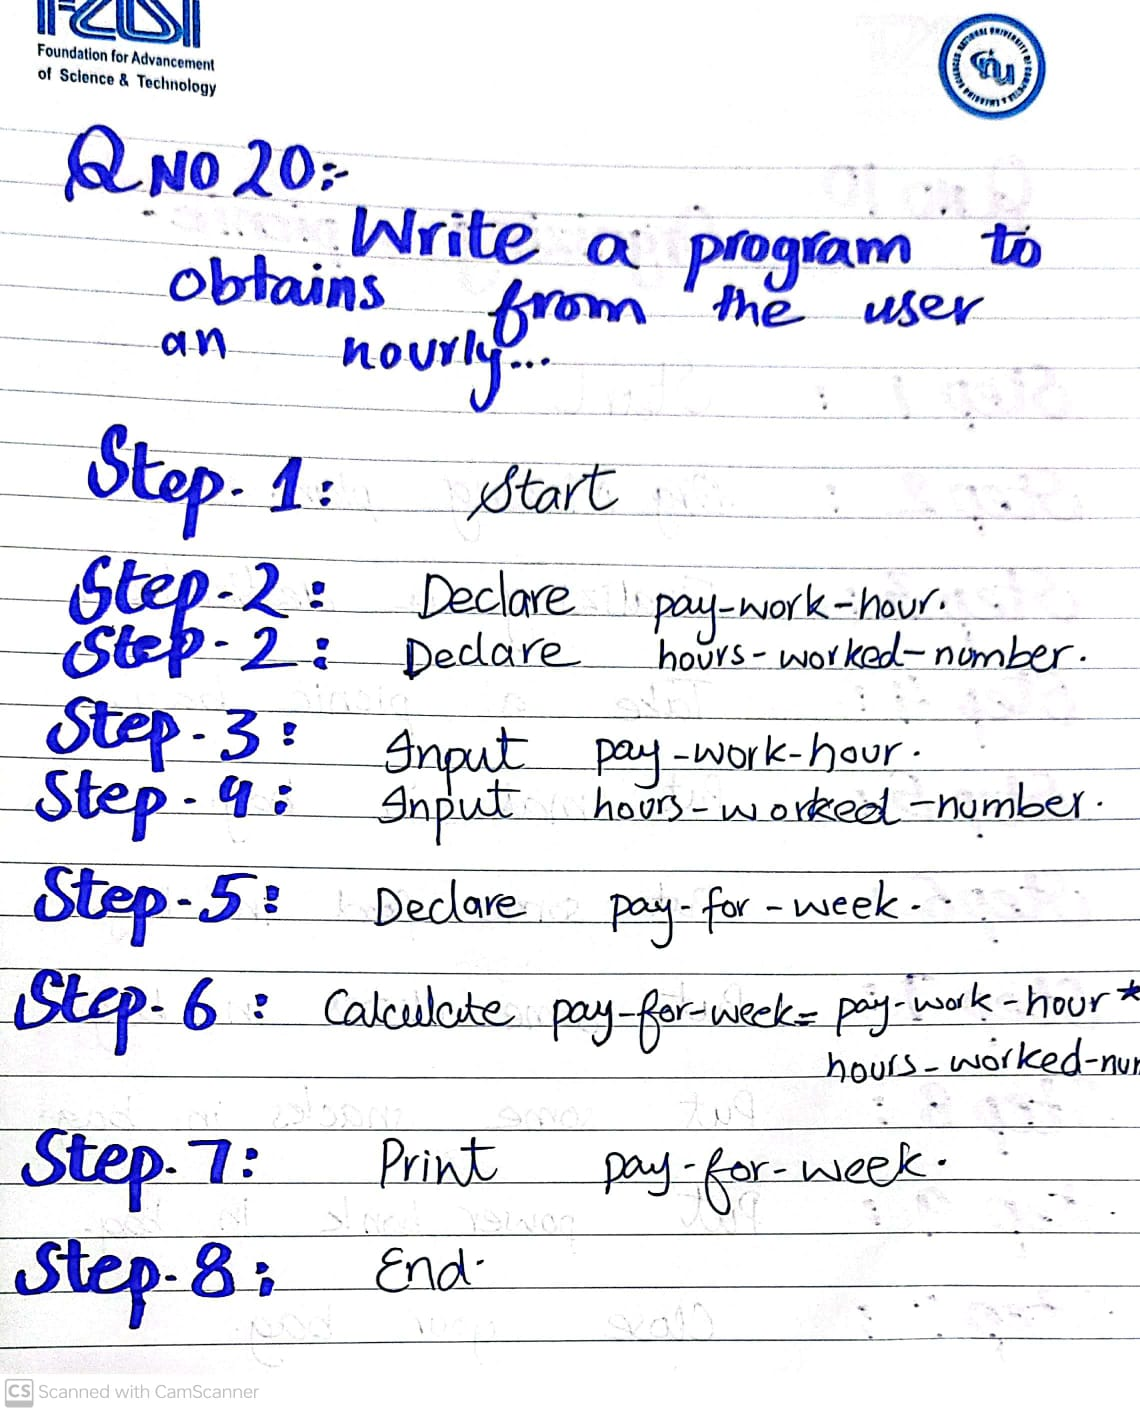 Foundation for Advancement
of Science & Technology
Q NO 20:-
Write a program to
obtains from the user
an hourly...
Step-1: Start
Step-2: Declare pay-work-hour.
Step-2: Declare hours-worked-number.
Step-3: Input pay-work-hour.
Step-4: Input hours-worked-number.
Step-5: Declare pay-for-week.
Step-6: Calculate pay-for-week= pay-work-hour*
hours-worked-num
Step-7: Print pay-for-week.
Step-8: End.
CS Scanned with CamScanner